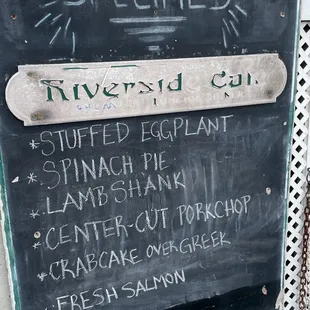 Riversid Caf.
* STUFFED EGGPLANT
* SPINACH PIE
* LAMB SHANK
* CENTER-CUT PORKCHOP
* CRABCAKE OVER GREEK
FRESH SALMON